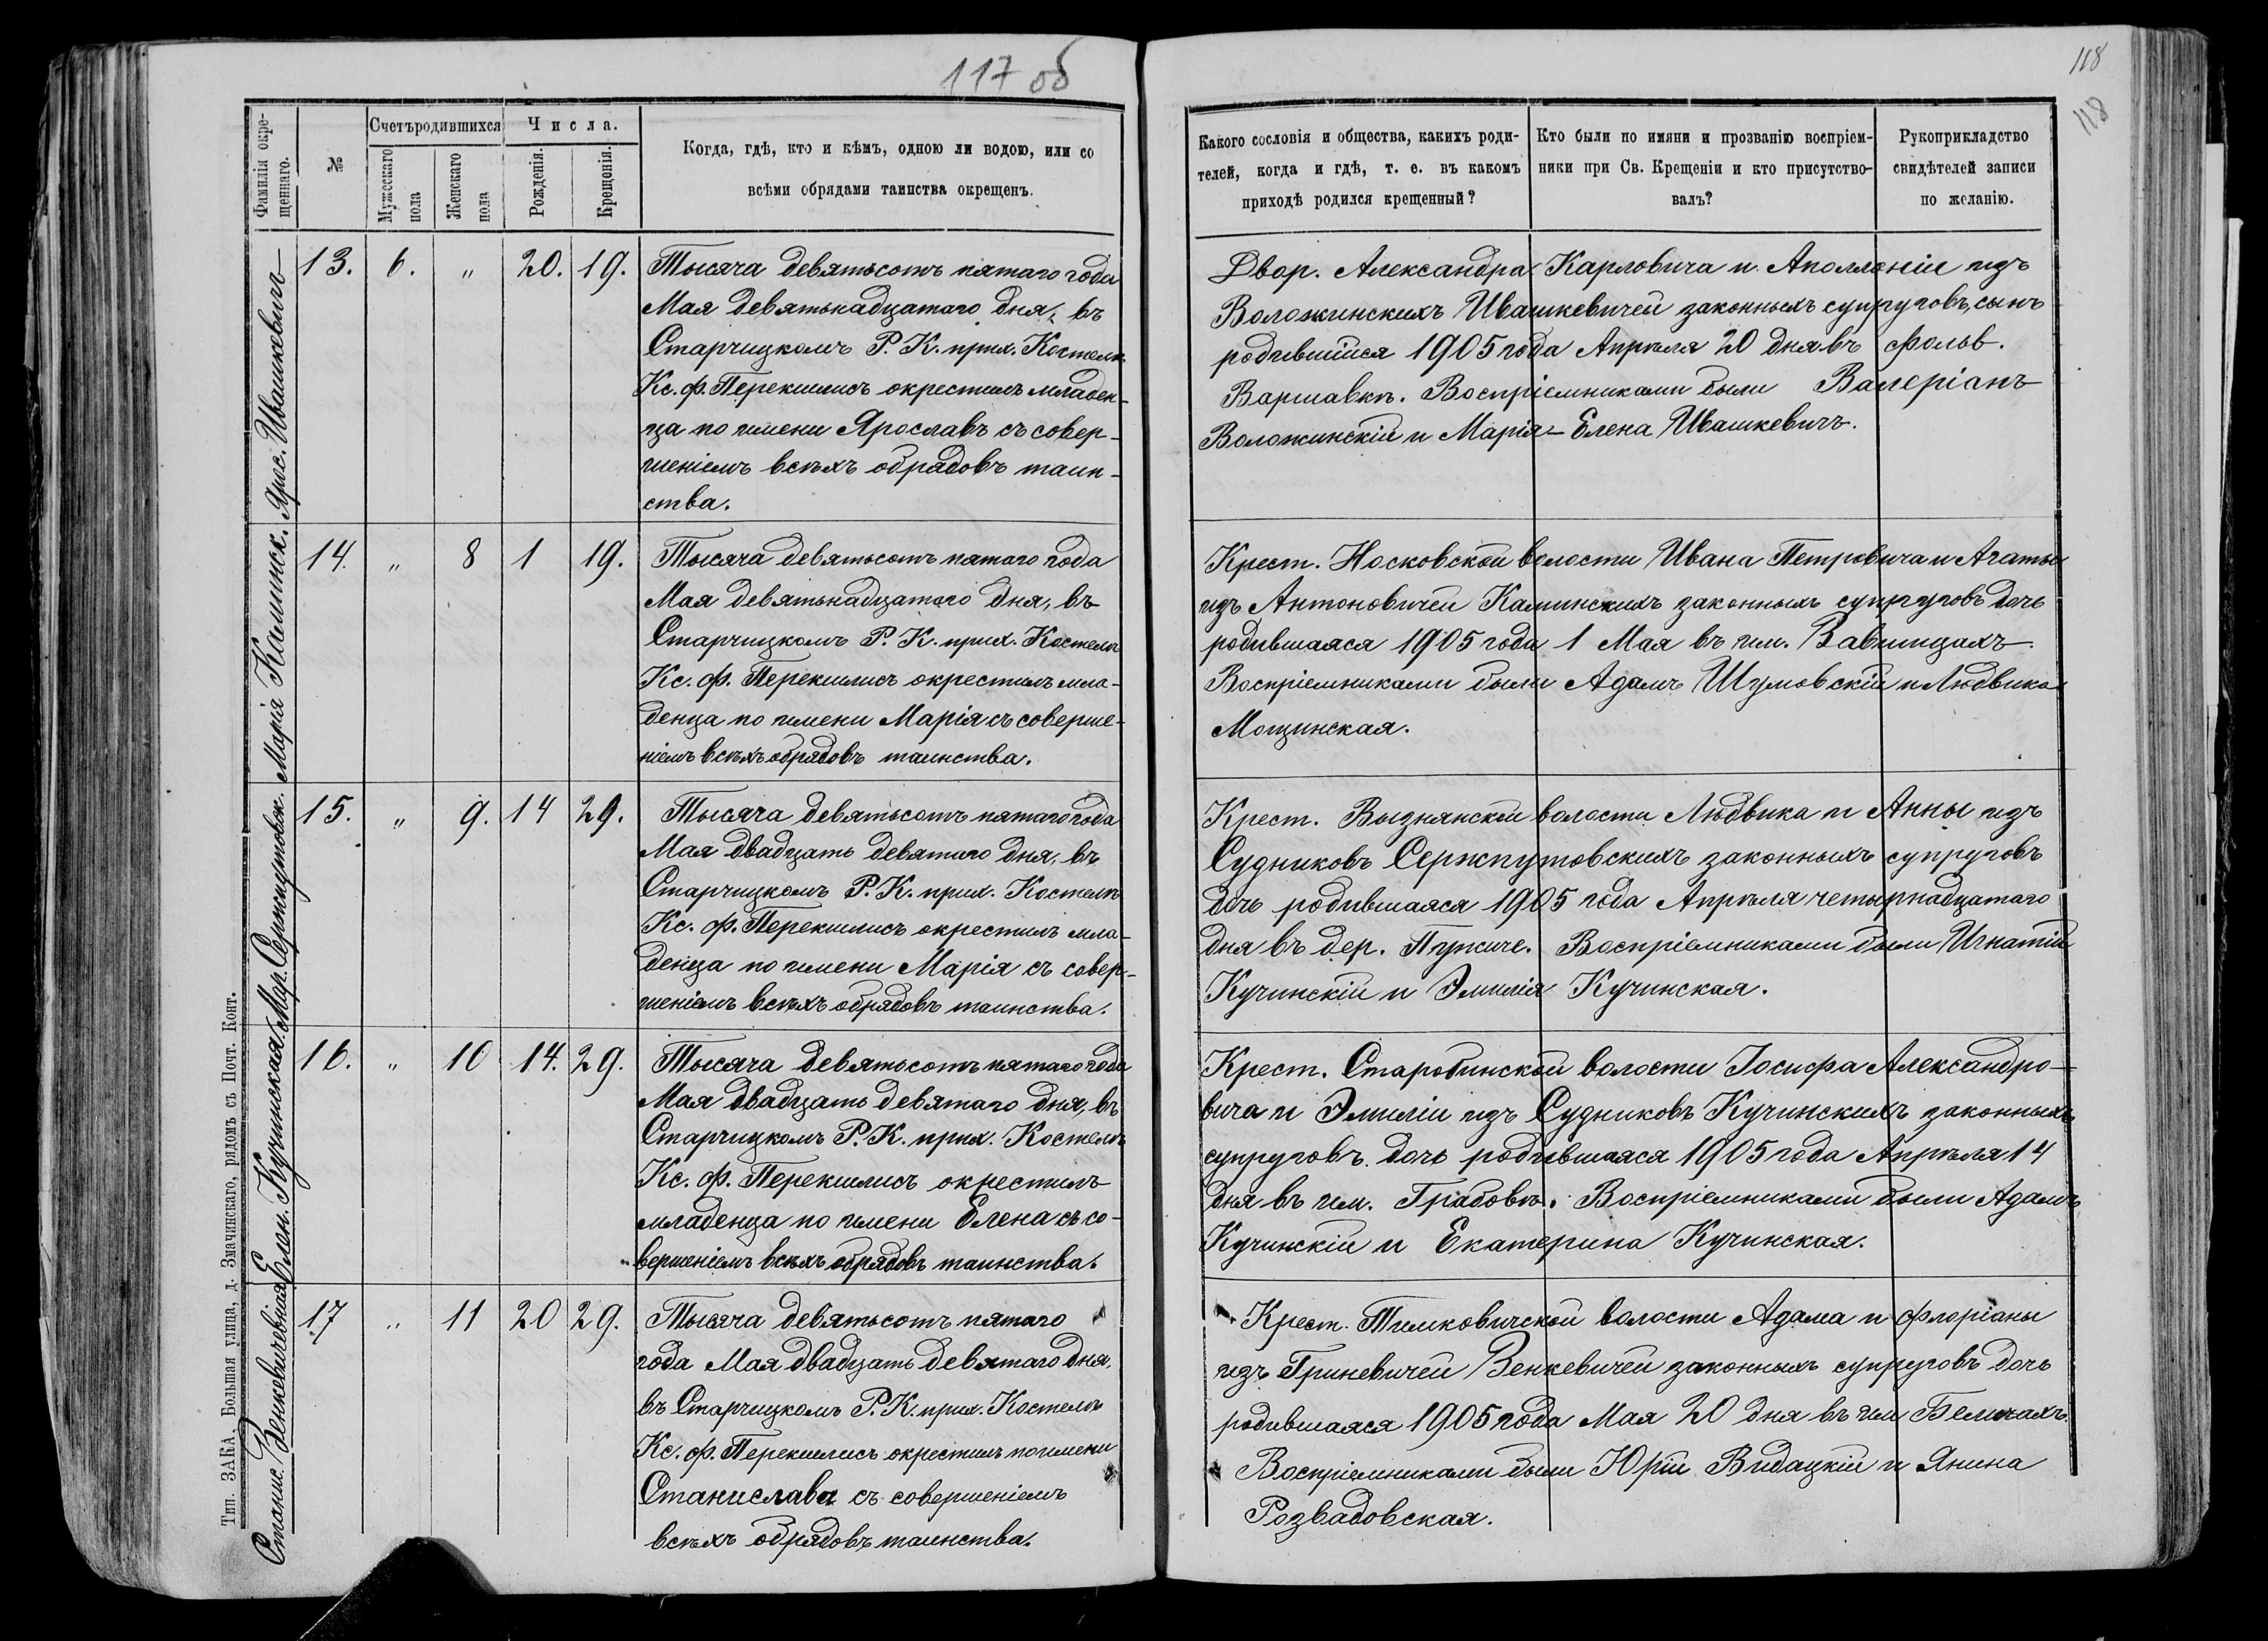 117 об
Фамилія окре-
щеннаго.
№
Счетъ родившихся
Мужескаго
пола
Женскаго
пола
Числа.
Рожденія.
Крещенія.
Когда, гдѣ, кто и кѣмъ, одною ли водою, или со
всѣми обрядами таинства окрещенъ.
Ярос. Ивашкевичъ
13. 6. „ 20. 19.
Тысяча девятьсотъ пятаго года
Мая девятьнадцатаго дня, въ
Старчицкомъ Р. К. прих. Костелѣ
Кс. ф. Перекшлисъ окрестилъ младен-
ца по имени Ярославъ съ совер-
шеніемъ всѣхъ обрядовъ таин-
ства.
Марія Каминск.
14. „ 8 1 19.
Тысяча девятьсотъ пятаго года
Мая девятьнадцатаго дня, въ
Старчицкомъ Р. К. прих. Костелѣ
Кс. ф. Перекшлисъ окрестилъ мла-
денца по имени Марія съ соверше-
ніемъ всѣхъ обрядовъ таинства.
Мар. Сержпутовск.
15. „ 9. 14 29.
Тысяча девятьсотъ пятаго года
Мая двадцать девятаго дня, въ
Старчицкомъ Р. К. прих. Костелѣ
Кс. ф. Перекшлисъ окрестилъ мла-
денца по имени Марія съ совер-
шеніемъ всѣхъ обрядовъ таинства.
Елен. Кучинская
16. „ 10 14. 29.
Тысяча девятьсотъ пятаго года
Мая двадцать девятаго дня, въ
Старчицкомъ Р. К. прих. Костелѣ
Кс. ф. Перекшлисъ окрестилъ
младенца по имени Елена съ со-
вершеніемъ всѣхъ обрядовъ таинства.
Станис. Венкевичевная
17 „ 11 20 29.
Тысяча девятьсотъ пятаго
года Мая двадцать девятаго дня,
въ Старчицкомъ Р. К. прих. Костелѣ
Кс. ф. Перекшлисъ окрестилъ по имени
Станислава съ совершеніемъ
всѣхъ обрядовъ таинства.
Тип. ЗАКА, Большая улица, д. Змачинскаго, рядомъ съ Почт. Конт.
118
118
Какого сословія и общества, какихъ роди-
телей, когда и гдѣ, т. е. въ какомъ
приходѣ родился крещенный?
Кто были по имяни и прозванію воспріем-
ники при Св. Крещеніи и кто присутство-
валъ?
Рукоприкладство
свидѣтелей записи
по желанію.
Двор. Александра Карловича и Аполлоніи изъ
Воложинскихъ Ивашкевичей законныхъ супруговъ, сынъ
родившійся 1905 года Апрѣля 20 дня въ фольв.
Варшавкѣ. Воспріемниками были Валеріанъ
Воложинскій и Марія-Елена Ивашкевичъ.
Крест. Носковской волости Ивана Петровича и Агаты
изъ Антоновичей Каминскихъ законныхъ супруговъ дочь
родившаяся 1905 года 1 Мая въ им. Вавницахъ.
Воспріемниками были Адамъ Шумовскій и Людвика
Мощинская.
Крест. Вызнянской волости Людвика и Анны изъ
Судниковъ Сержпутовскихъ законныхъ супруговъ
дочь родившаяся 1905 года Апрѣля четырнадцатаго
дня въ дер. Пужиче. Воспріемниками были Игнатій
Кучинскій и Эмилія Кучинская.
Крест. Старобинской волости Іосифа Александро-
вича и Эмиліи изъ Судниковъ Кучинскихъ законныхъ
супруговъ дочь родившаяся 1905 года Апрѣля 14
дня въ им. Грабовѣ. Воспріемниками были Адамъ
Кучинскій и Екатерина Кучинская.
Крест. Тимковичской волости Адама и Флоріаны
изъ Гриневичей Венкевичей законныхъ супруговъ дочь
родившаяся 1905 года Мая 20 дня въ им Беличахъ
Воспріемниками были Юрій Видацкій и Янина
Розвадовская.